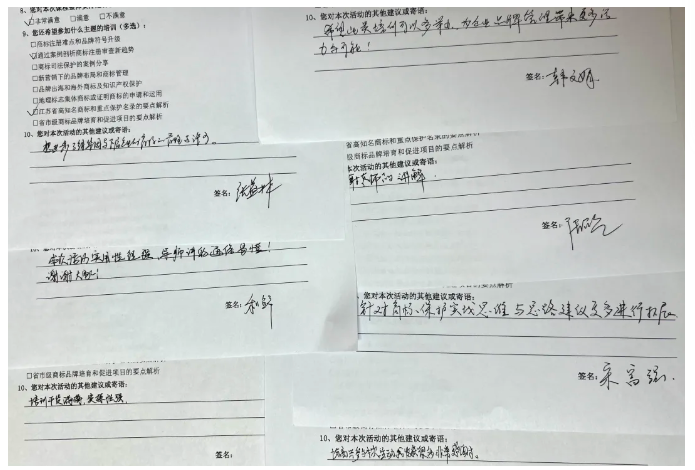 8、您对本次课程整体
☑非常满意 □满意 □不满意
9、您还希望参加什么主题的培训（多选）：
□商标注册难点和品牌符号升级
☑通过案例剖析商标注册审查新趋势
□商标司法保护的案例分享
□新营销下的品牌布局和商标管理
□品牌出海和海外商标及知识产权保护
□地理标志集体商标或证明商标的申请和运用
☑江苏省高知名商标和重点保护名录的要点解析
□省市级商标品牌培育和促进项目的要点解析
10、您对本次活动的其他建议或寄语：
签名：
10、您对本次活动的其他建议或寄语：
希望此类培训可以多举办，为企业品牌管理带来更多活
力与可能！
签名：韩文娟
省高知名商标和重点保护名录的要点解析
级商标品牌培育和促进项目的要点解析
本次活动的其他建议或寄语：
老师的讲解
签名：
本次活动实用性很强，导师讲的通俗易懂！
谢谢人和！
签名：
、您对本次活动的其他建议或寄语：
针对商标保护实战思维与思路建议更多进行拓展
签名：宋富强
□省市级商标品牌培育和促进项目的要点解析
10、您对本次活动的其他建议或寄语：
培训干货满满，实操性强。
签名：
10、您对本次活动的其他建议或寄语：